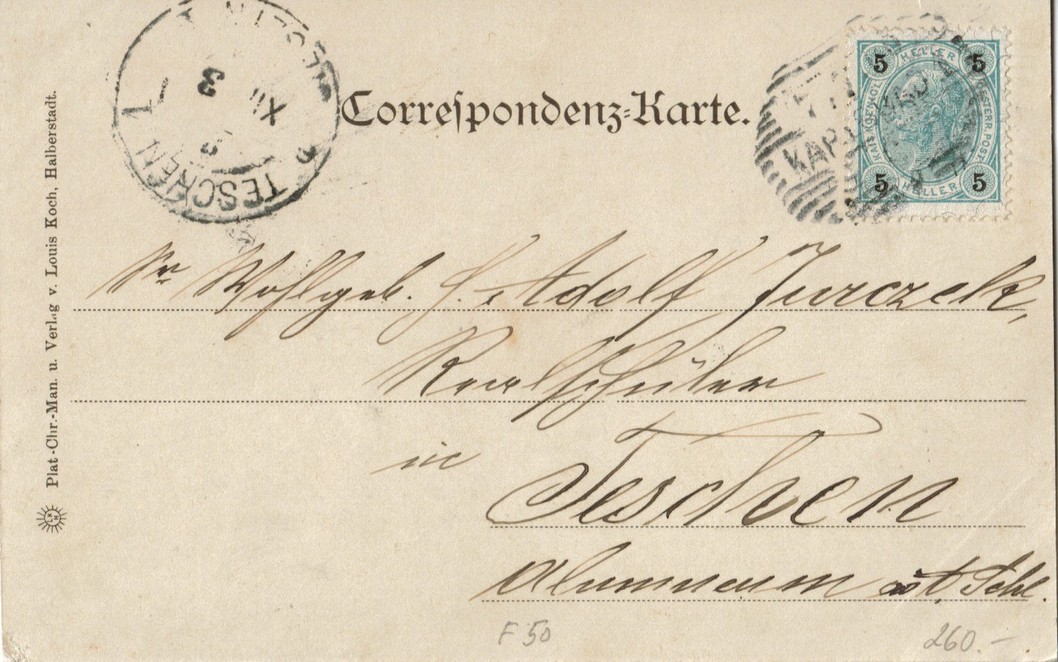 Correspondenz-Karte.
5 HELLER 5
KAIS. KOENIGL. OESTERR. POST.
5 HELLER 5
TESCHEN
XII
3
9
Plat.-Chr.-Man. u. Verlag v. Louis Koch, Halberstadt.
Sr Wohlgeb. H. Adolf Jurczek,
Realschüler
in
Teschen
Alumneum öst. Schl.
F 50
260.—